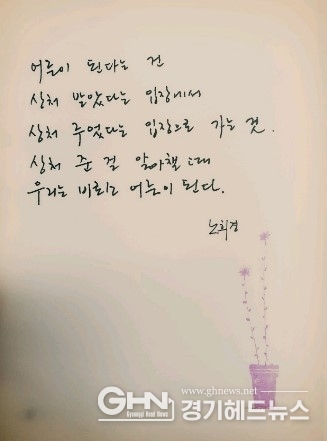 어른이 된다는 건
상처 받았다는 입장에서
상처 주었다는 입장으로 가는 것.
상처 준 걸 알아챌 때
우리는 비로소 어른이 된다.
노희경
www.ghnews.net
GHN 경기헤드뉴스
Gyeonggi Head News